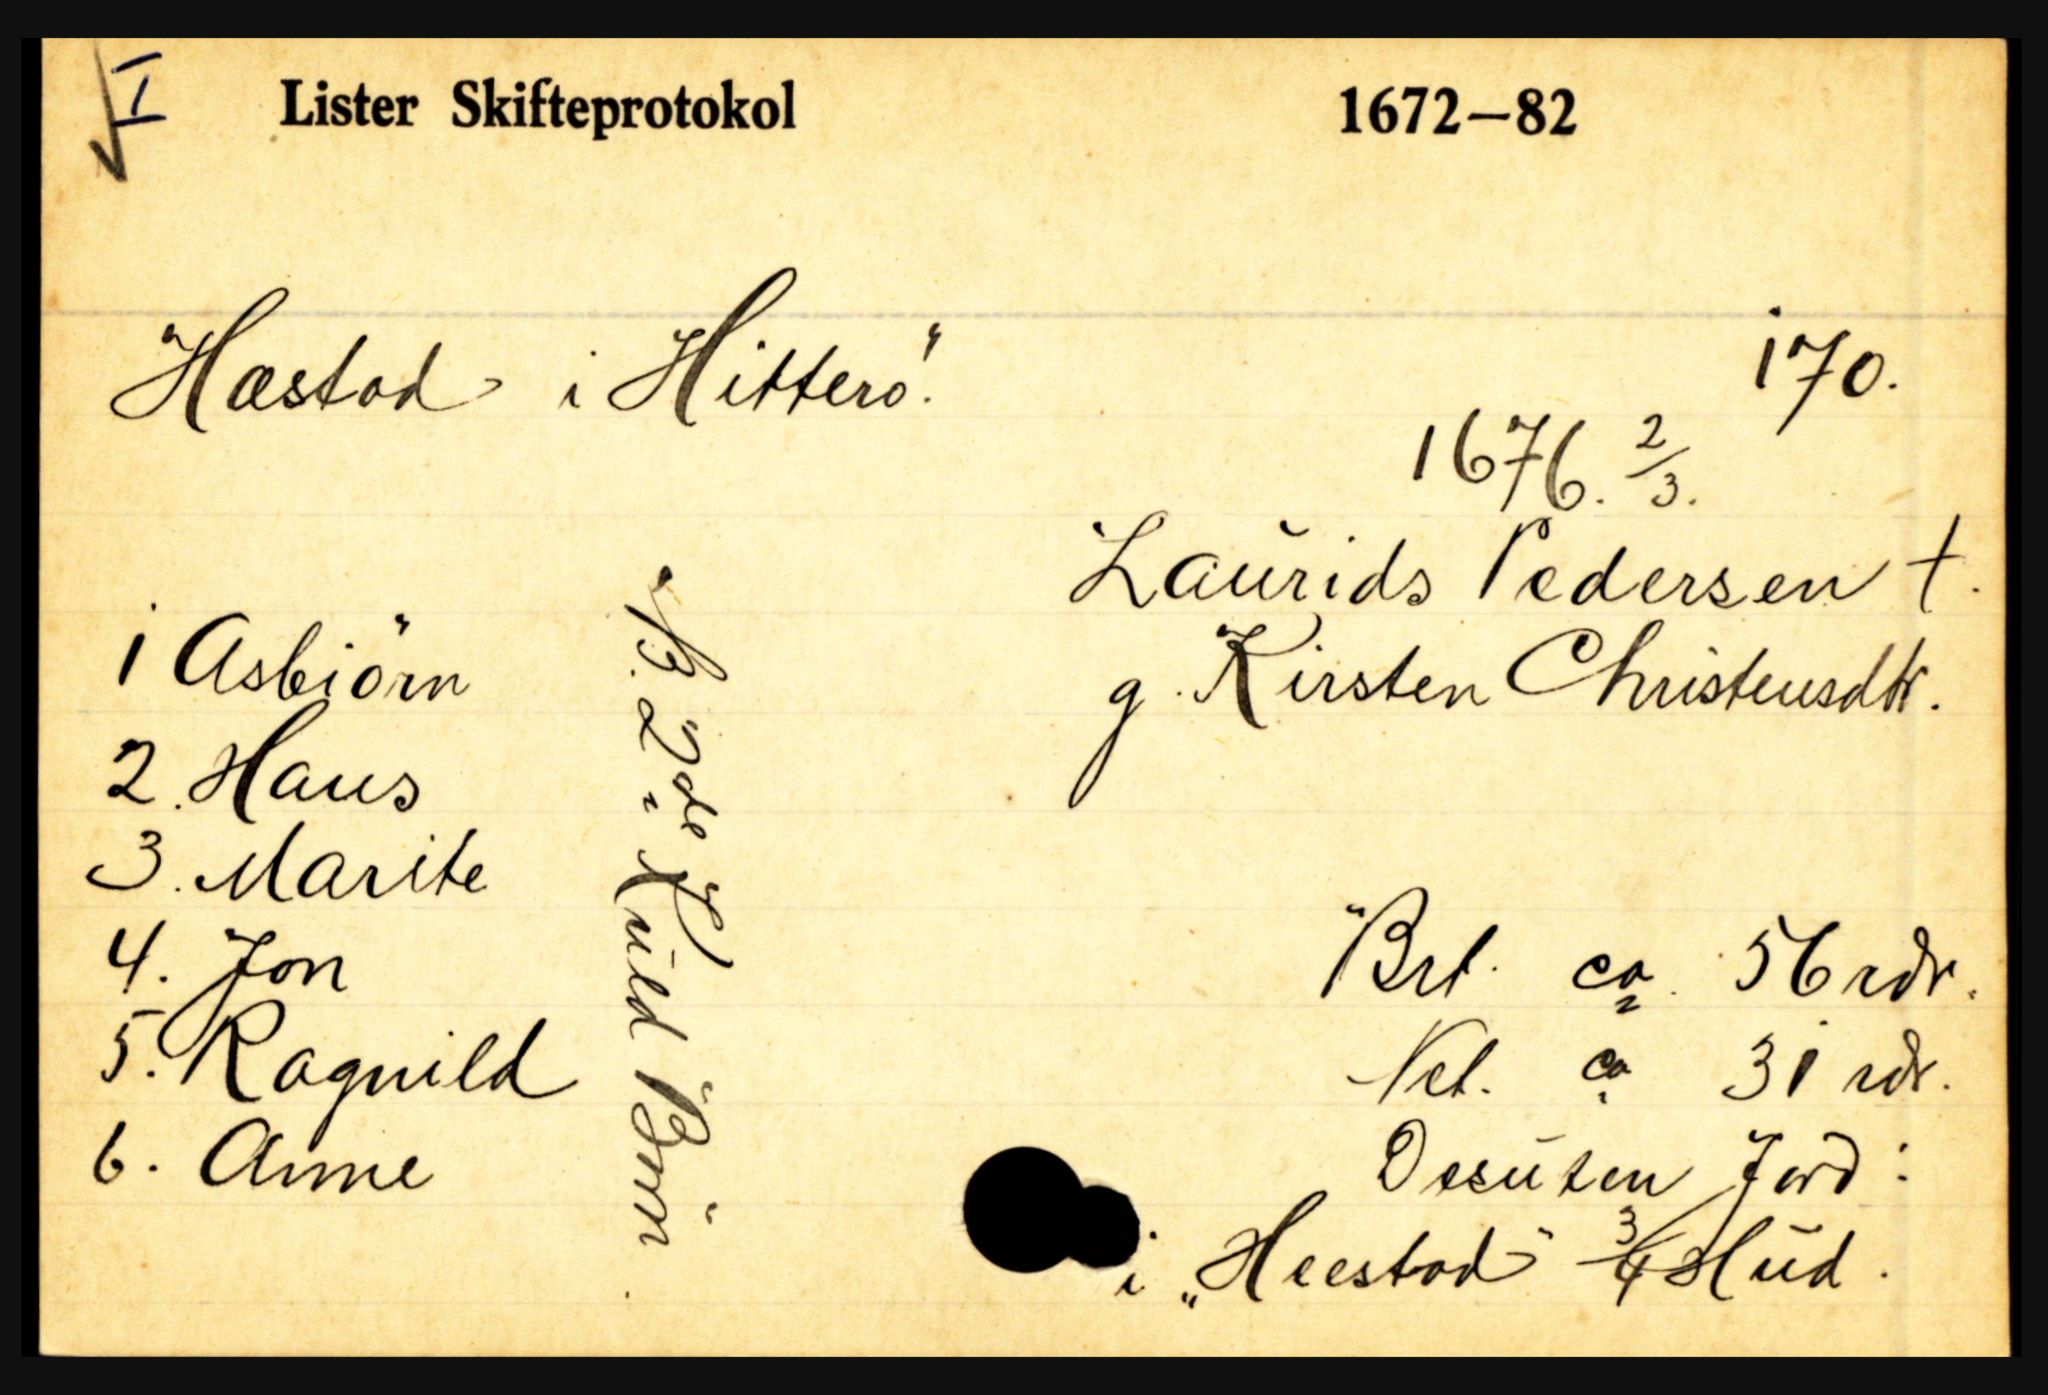 I Lister Skifteprotokol 1672–82
Hæstad i Hitterö.
170.
1676. 2/3.
Laurids Pedersen †.
g. Kirsten Christensdtr.
1 Asbiörn
2. Hans
3. Marite
4. Jon
5. Ragnild
6. Anne
2de Kuld Börn
Brt. ca. 56 rdr.
Net. ca 31 rdr.
Desuten Jord:
i „Heestad" 3/4 Hud.